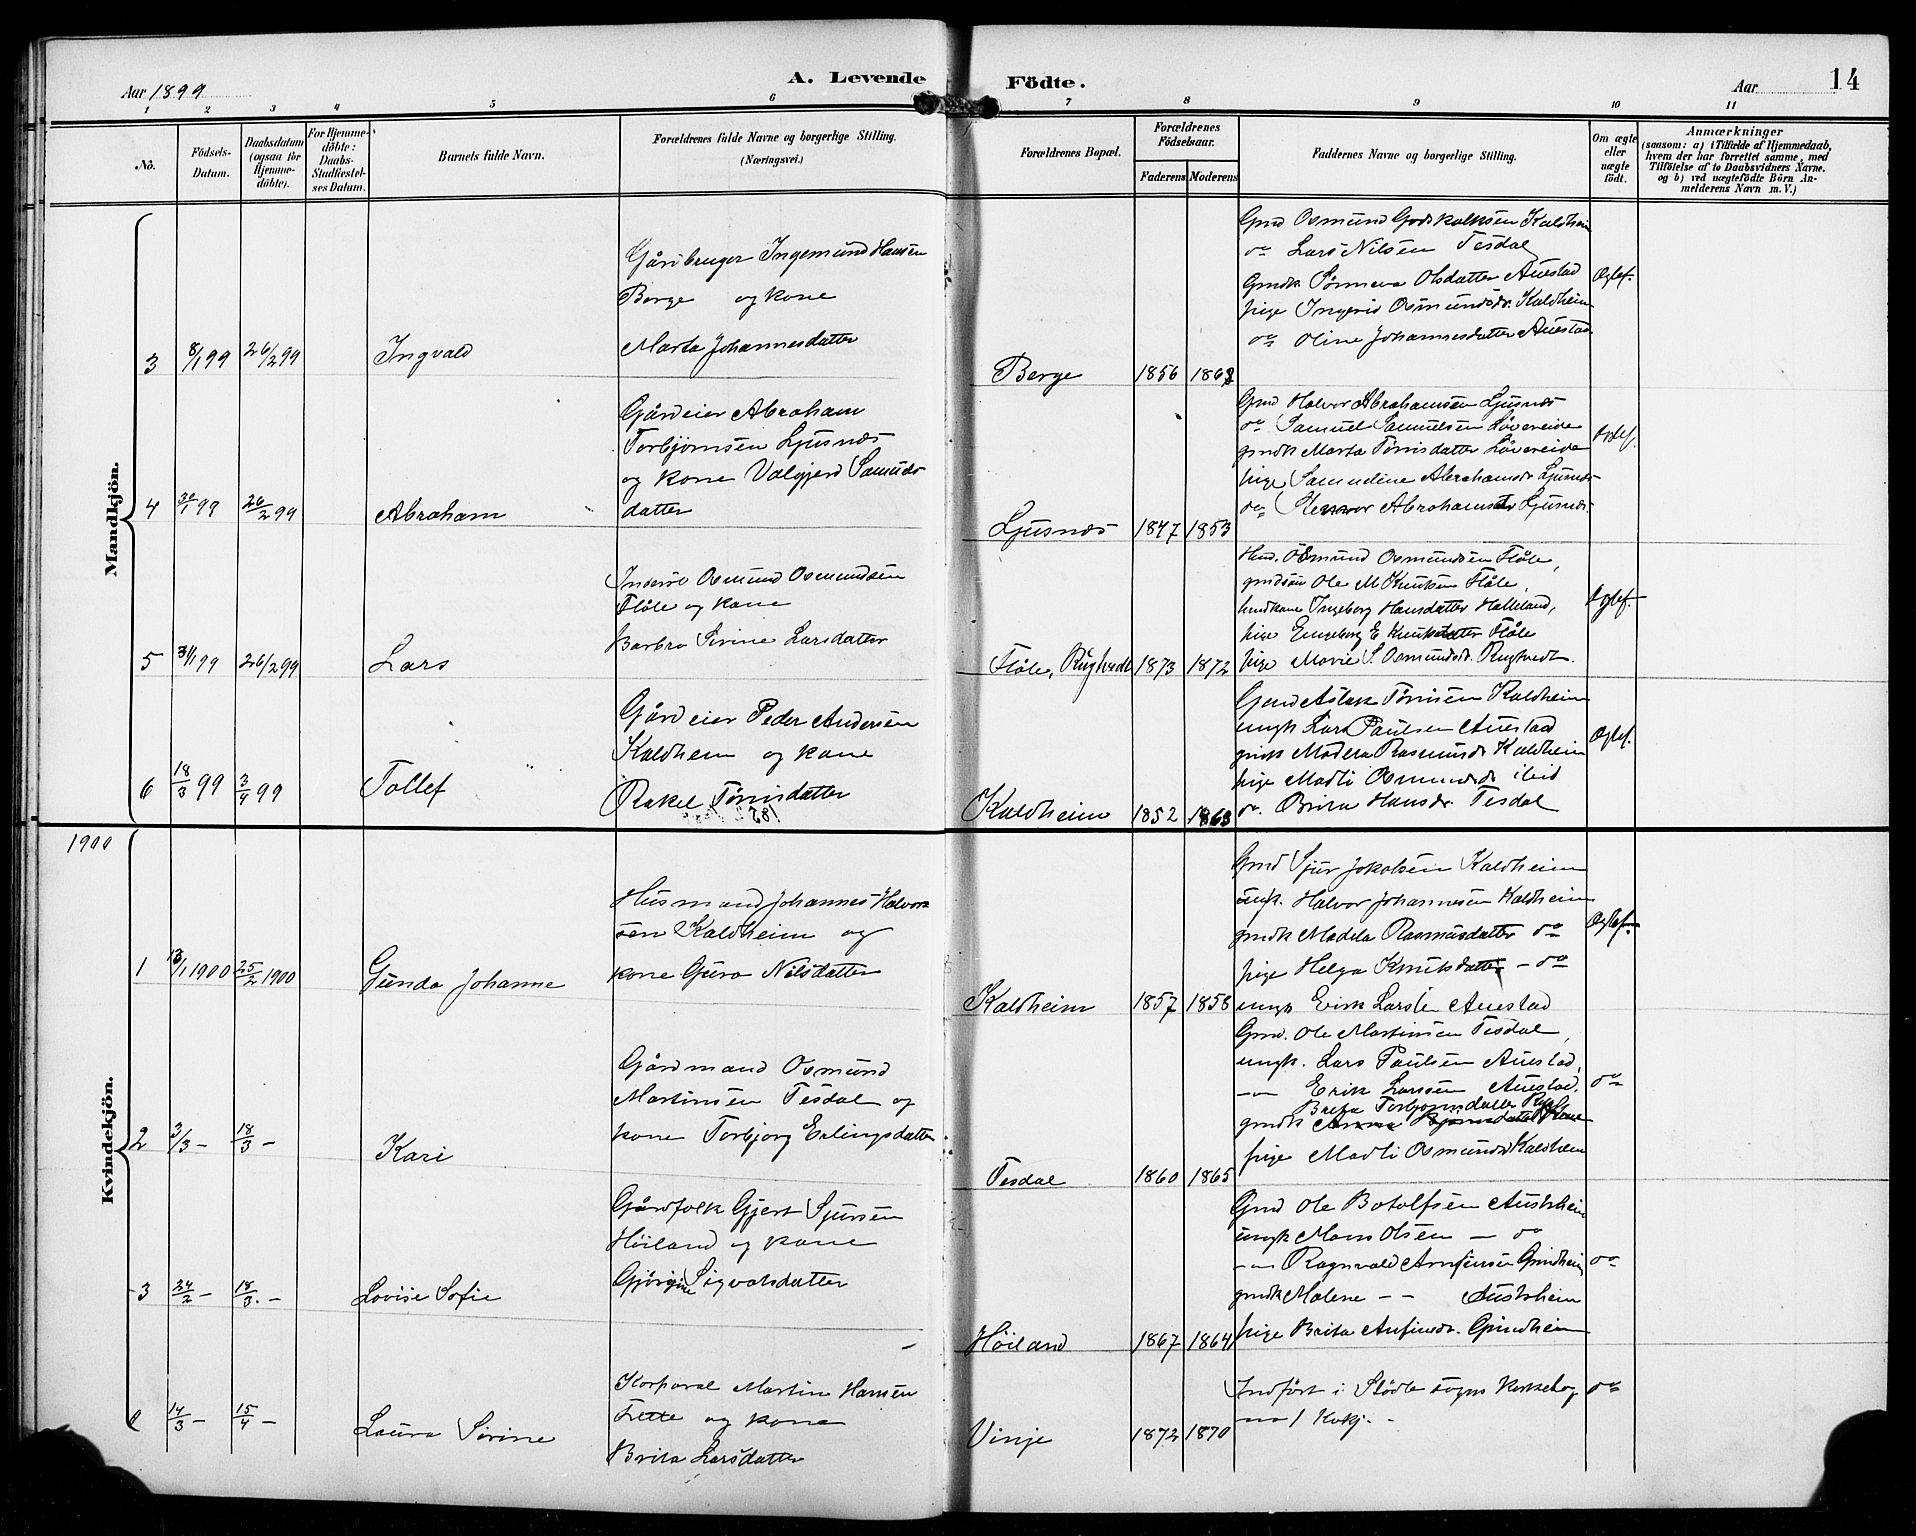 A. Levende Födte.
Aar 1899
Aar
14
1 2 3 4 5 6 7 8 9 10 11
No.
Födsels-Datum.
Daabsdatum (ogsaa for Hjemme-döbte).
For Hjemme-döbte: Daabs-Stadfæstel-ses Datum.
Barnets fulde Navn.
Forældrenes fulde Navne og borgerlige Stilling.
(Næringsvei.)
Forældrenes Bopæl.
Forældrenes Födselsaar.
Faderens Moderens
Faddernes Navne og borgerlige Stilling.
Om ægte eller uægte födt.
Anmærkninger
(saasom: a) i Tilfælde af Hjemmedaab,
hvem der har forrettet samme, med
Tilföielse af to Daabsvidners Navne.
og b) ved uægtefödte Börn An-
melderens Navn m. V.)
Mandkjön.
3 8/1 99 26/2 99 Ingvald
Gårdbruger Ingemund Hansen
Berge og kone
Marta Johannesdatter
Berge 1856 1868
Gmd Osmund Godskalksen Kaldheim
do Lars Nilsen Tesdal
Gmdk Sønneva Olsdatter Auestad
pige Ingerid Osmundsdr. Kaldheim
do Oline Johannesdatter Auestad
Ægtef.
4 30/1 99 26/2 99 Abraham
Gårdeier Abraham
Torbjørnsen Ljusnes
og kone Valgjerd Samuels
datter
Ljusnes 1847 1853
Gmd Halvor Abrahamsen Ljusnes
do Samuel Samuelsen Løvereide
gmdk Marta Tørrisdatter Løvereide
pige Samueline Abrahamsdr Ljusnes
do Abrahamsdr Ljusnes
Ægtef.
5 31/1 99 26/2 99 Lars
Inderst Osmund Osmundsen
Fløte og kone
Barbra Serine Larsdatter
Fløte, Rugtvedt 1873 1872
Hmd. Osmund Osmundsen Fløte,
gmdsøn Ole M Knutsen Fløte,
hmdkone Ingeborg Hansdatter Halleland,
pige Engeborg E Knutsdatter Fløte
pige Marie S. Osmundsdr. Rugtvedt.
Ægtef.
6 18/3 99 3/4 99 Tollef
Gårdeier Peder Andersen
Kaldheim og kone
Rakel Tørrisdatter
Kaldheim 1852 1863
Gmd Aslak Tørrisen Kaldheim
ungk Lars Paulsen Auestad
gmdk Madela Rasmusdr Kaldheim
pige Madli Osmundsdr ibid
do. Brita Hansdr. Tesdal
Ægtef.
1900
Kvindekjön.
1 13/1 1900 25/2 1900 Gunda Johanne
Husmand Johannes Halvor
sen Kaldheim og
kone Guro Nilsdatter
Kaldheim 1857 1858
Gmd Sjur Jokolsen Kaldheim
ungk. Halvor Johannesen Kaldheim
gmdk Madela Rasmusdatter do
pige Helga Knutsdatter — do
ungk Erik Larsen Auestad
Ægtef.
2 3/3 — 18/3 — Kari
Gårdmand Osmund
Martinsen Tesdal og
kone Torbjorg Erlingsdatter
Tesdal 1860 1865
Gmd. Ole Martinsen Tesdal,
ungk. Lars Paulsen Auestad,
— Erik Larsen Auestad.
Brita Torbjørnsdatter
gmdk
pige Madli Osmundsdr Kaldheim
do
3 24/2 — 18/3 — Lovise Sofie
Gårdfolk Gjert Sjursen
Høiland og kone
Gjørgine Sigvatsdatter
Høiland 1867 1864
Gmd Ole Botolfsen Austrheim
ungk Mons Olsen — do
— Ragnvald Arnfinsen Grindheim
gmdk Malene — — Austrheim
pige Brita Anfinsdr. Grindheim
do
14/3 — 15/4 — Laura Serine
Korporal Martin Hansen
Tette og kone
Brita Larsdatter
Vinje 1872 1870
Indført i Stødle sogns kirkebog
no 1 Kvkj. —
do